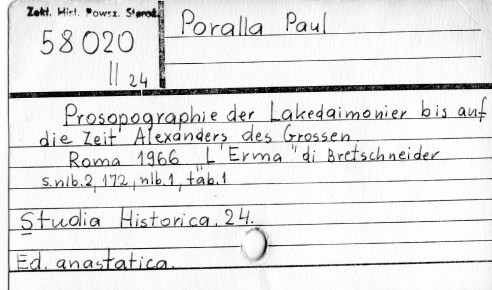 Zakł. Hist. Powsz. Staroż.
58020
II 24
Poralla Paul
Prosopographie der Lakedaimonier bis auf
die Zeit Alexanders des Grossen.
Roma 1966 L'Erma "di Bretschneider
s.nlb.2, 172, nlb.1, tab.1
Studia Historica. 24.
Ed. anastatica.